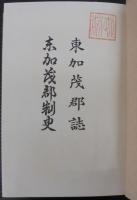 東加茂郡誌
東加茂郡制史